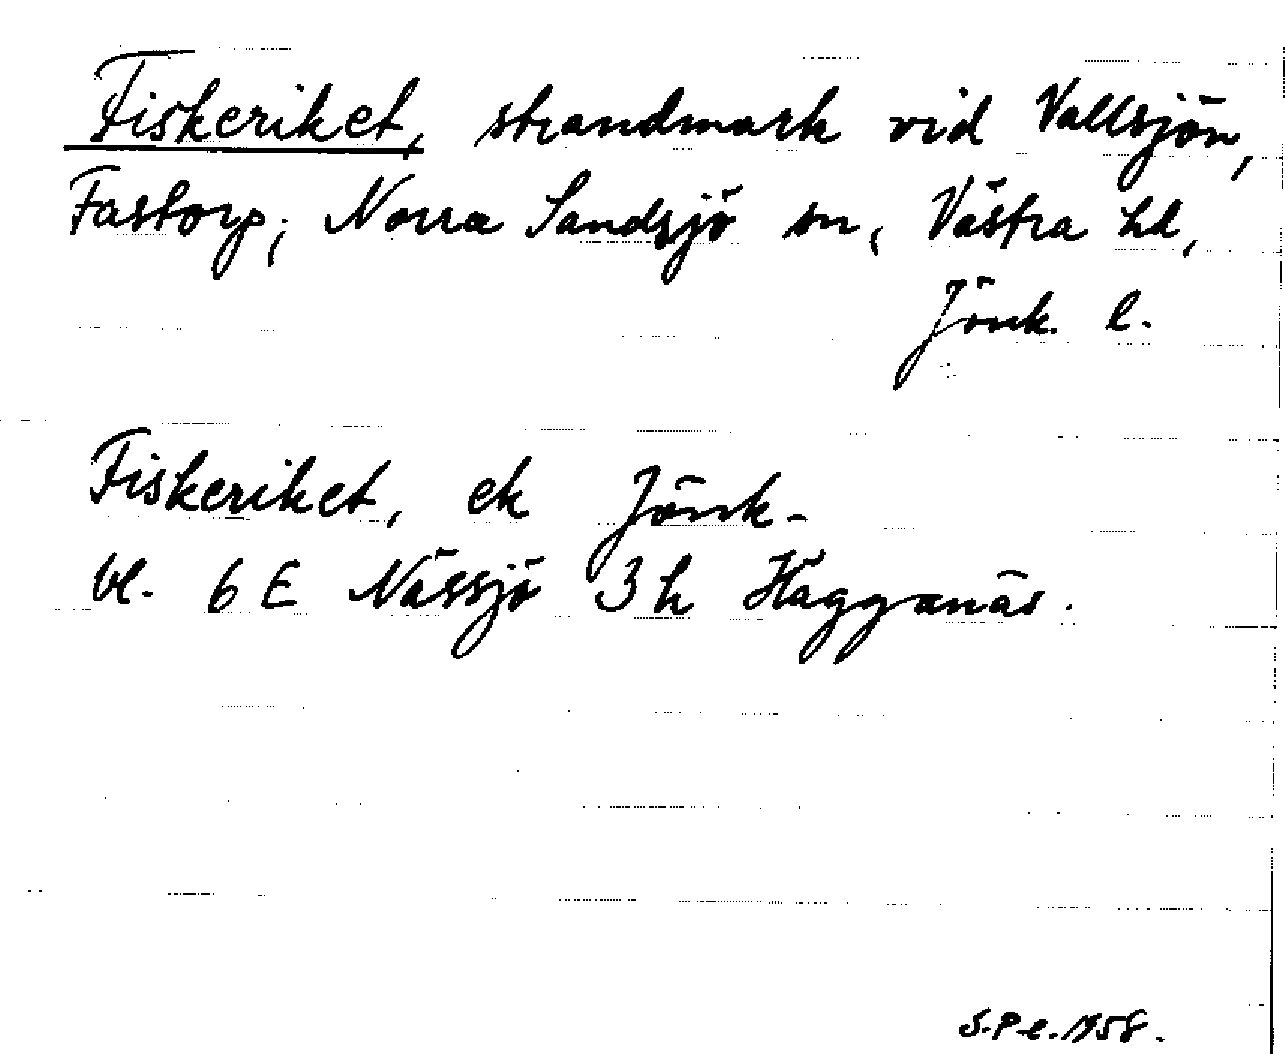 Fiskeriket, strandmark vid Vallsjön,
Fastorp, Norra Sandsjö sn, Västra hd,
Jönk. l.
Fiskeriket, ek Jönk.
bl. 6 E Nässjö 3 h Hägganäs.
S.P-e. 1958.